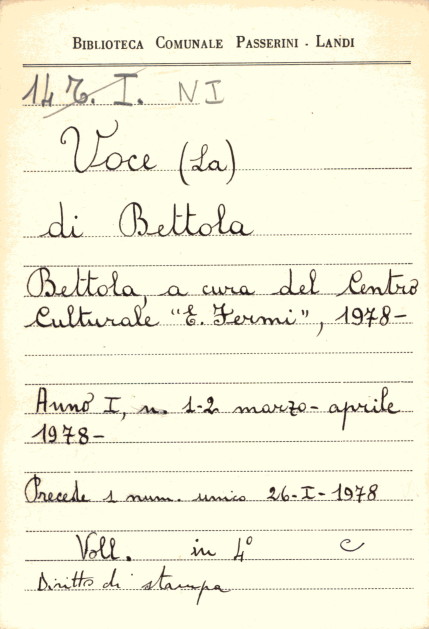 BIBLIOTECA COMUNALE PASSERINI - LANDI
147. I. NI
Voce (La)
di Bettola
Bettola, a cura del Centro
Culturale "E. Fermi", 1978-
Anno I, n. 1-2 marzo- aprile
1978-
Precede 1 num. unico 26-I-1978
Voll. in 4° C
Diritto di stampa